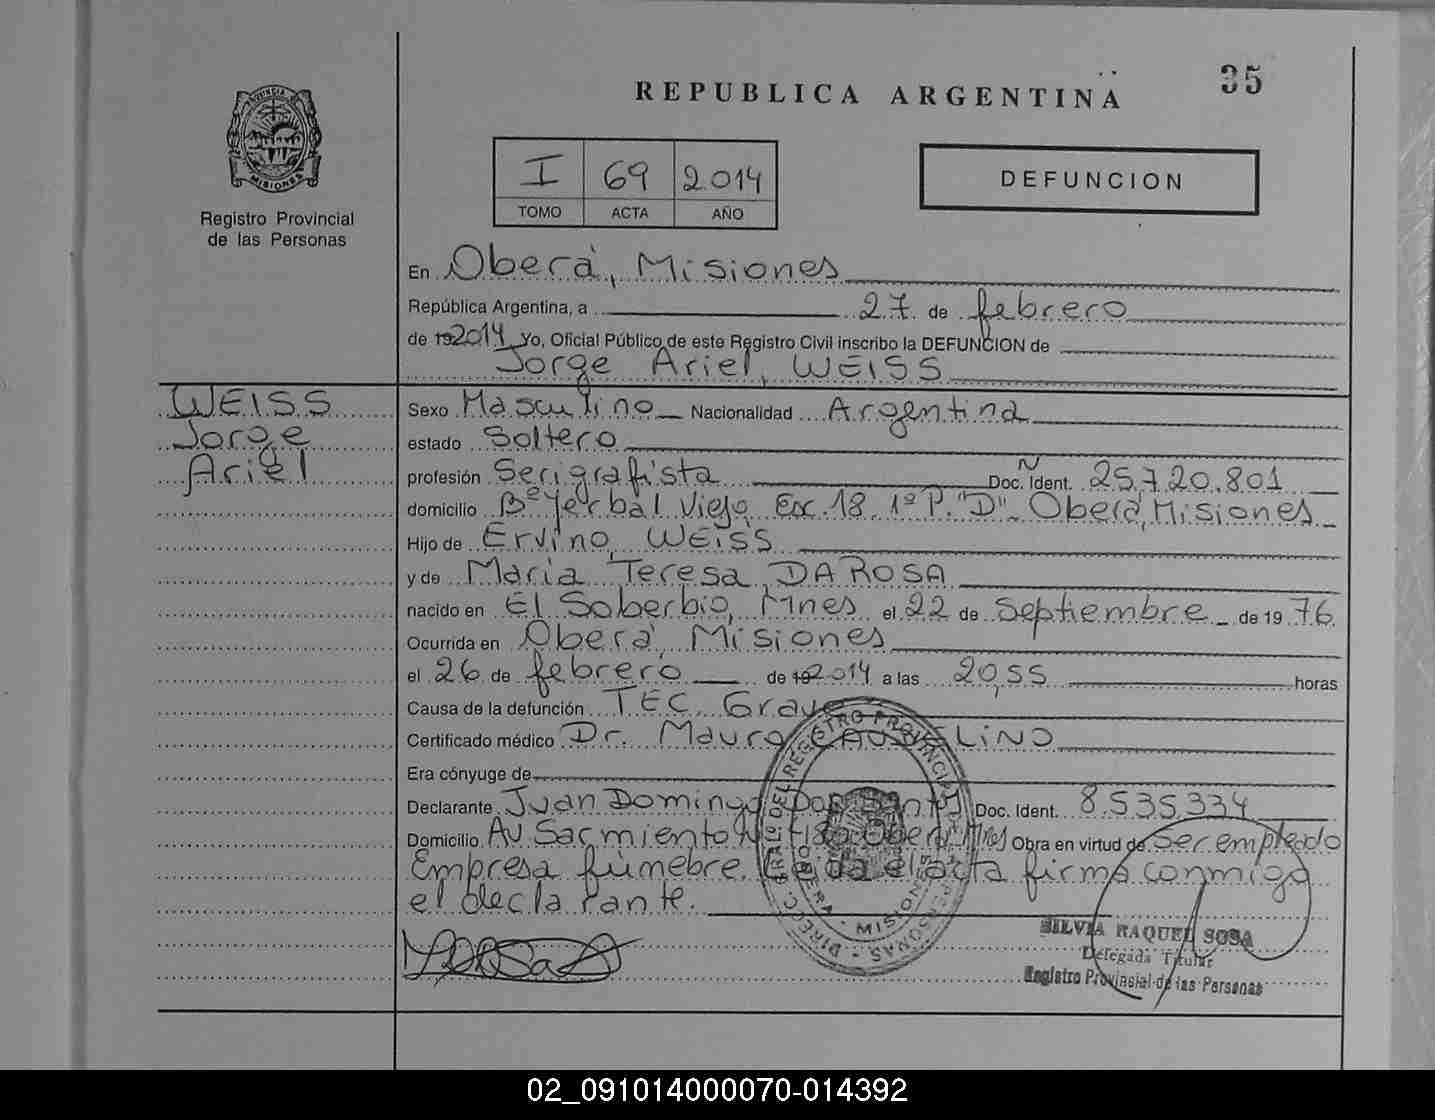 REPUBLICA ARGENTINA
35
PROVINCIA
MISIONES
Registro Provincial
de las Personas
I 69 2014
TOMO ACTA AÑO
DEFUNCION
En Oberá, Misiones
República Argentina, a 27 de febrero
de 192014 Yo, Oficial Público de este Registro Civil inscribo la DEFUNCION de
Jorge Ariel, WEISS
WEISS
Jorge
Ariel
Sexo Masculino Nacionalidad Argentina
estado Soltero
profesión Serigrafista Doc. Ident. Nº 25.720.801
domicilio Bº Yerbal Viejo, Esc. 18 1º P. "D" Oberá, Misiones
Hijo de Ervino, WEISS
y de Maria Teresa, DA ROSA
nacido en El Soberbio, Mnes el 22 de Septiembre de 1976
Ocurrida en Oberá, Misiones
el 26 de febrero de 192014 a las 20,55 horas
Causa de la defunción TEC. Grave
Certificado médico Dr. Mauro
Era cónyuge de
Declarante Juan Domingo Doc. Ident. 8.535.334
Domicilio Av Sarmiento Oberá Mnes Obra en virtud de Ser empleado
Empresa fúnebre. Leída el acta firma conmigo
el declarante.
DIREC. GRAL. DEL REGISTRO PROVINCIAL DE LAS PERSONAS
OBERA - MISIONES
SILVIA RAQUEL SOSA
Delegada Titular
Registro Provincial de las Personas
02_091014000070-014392